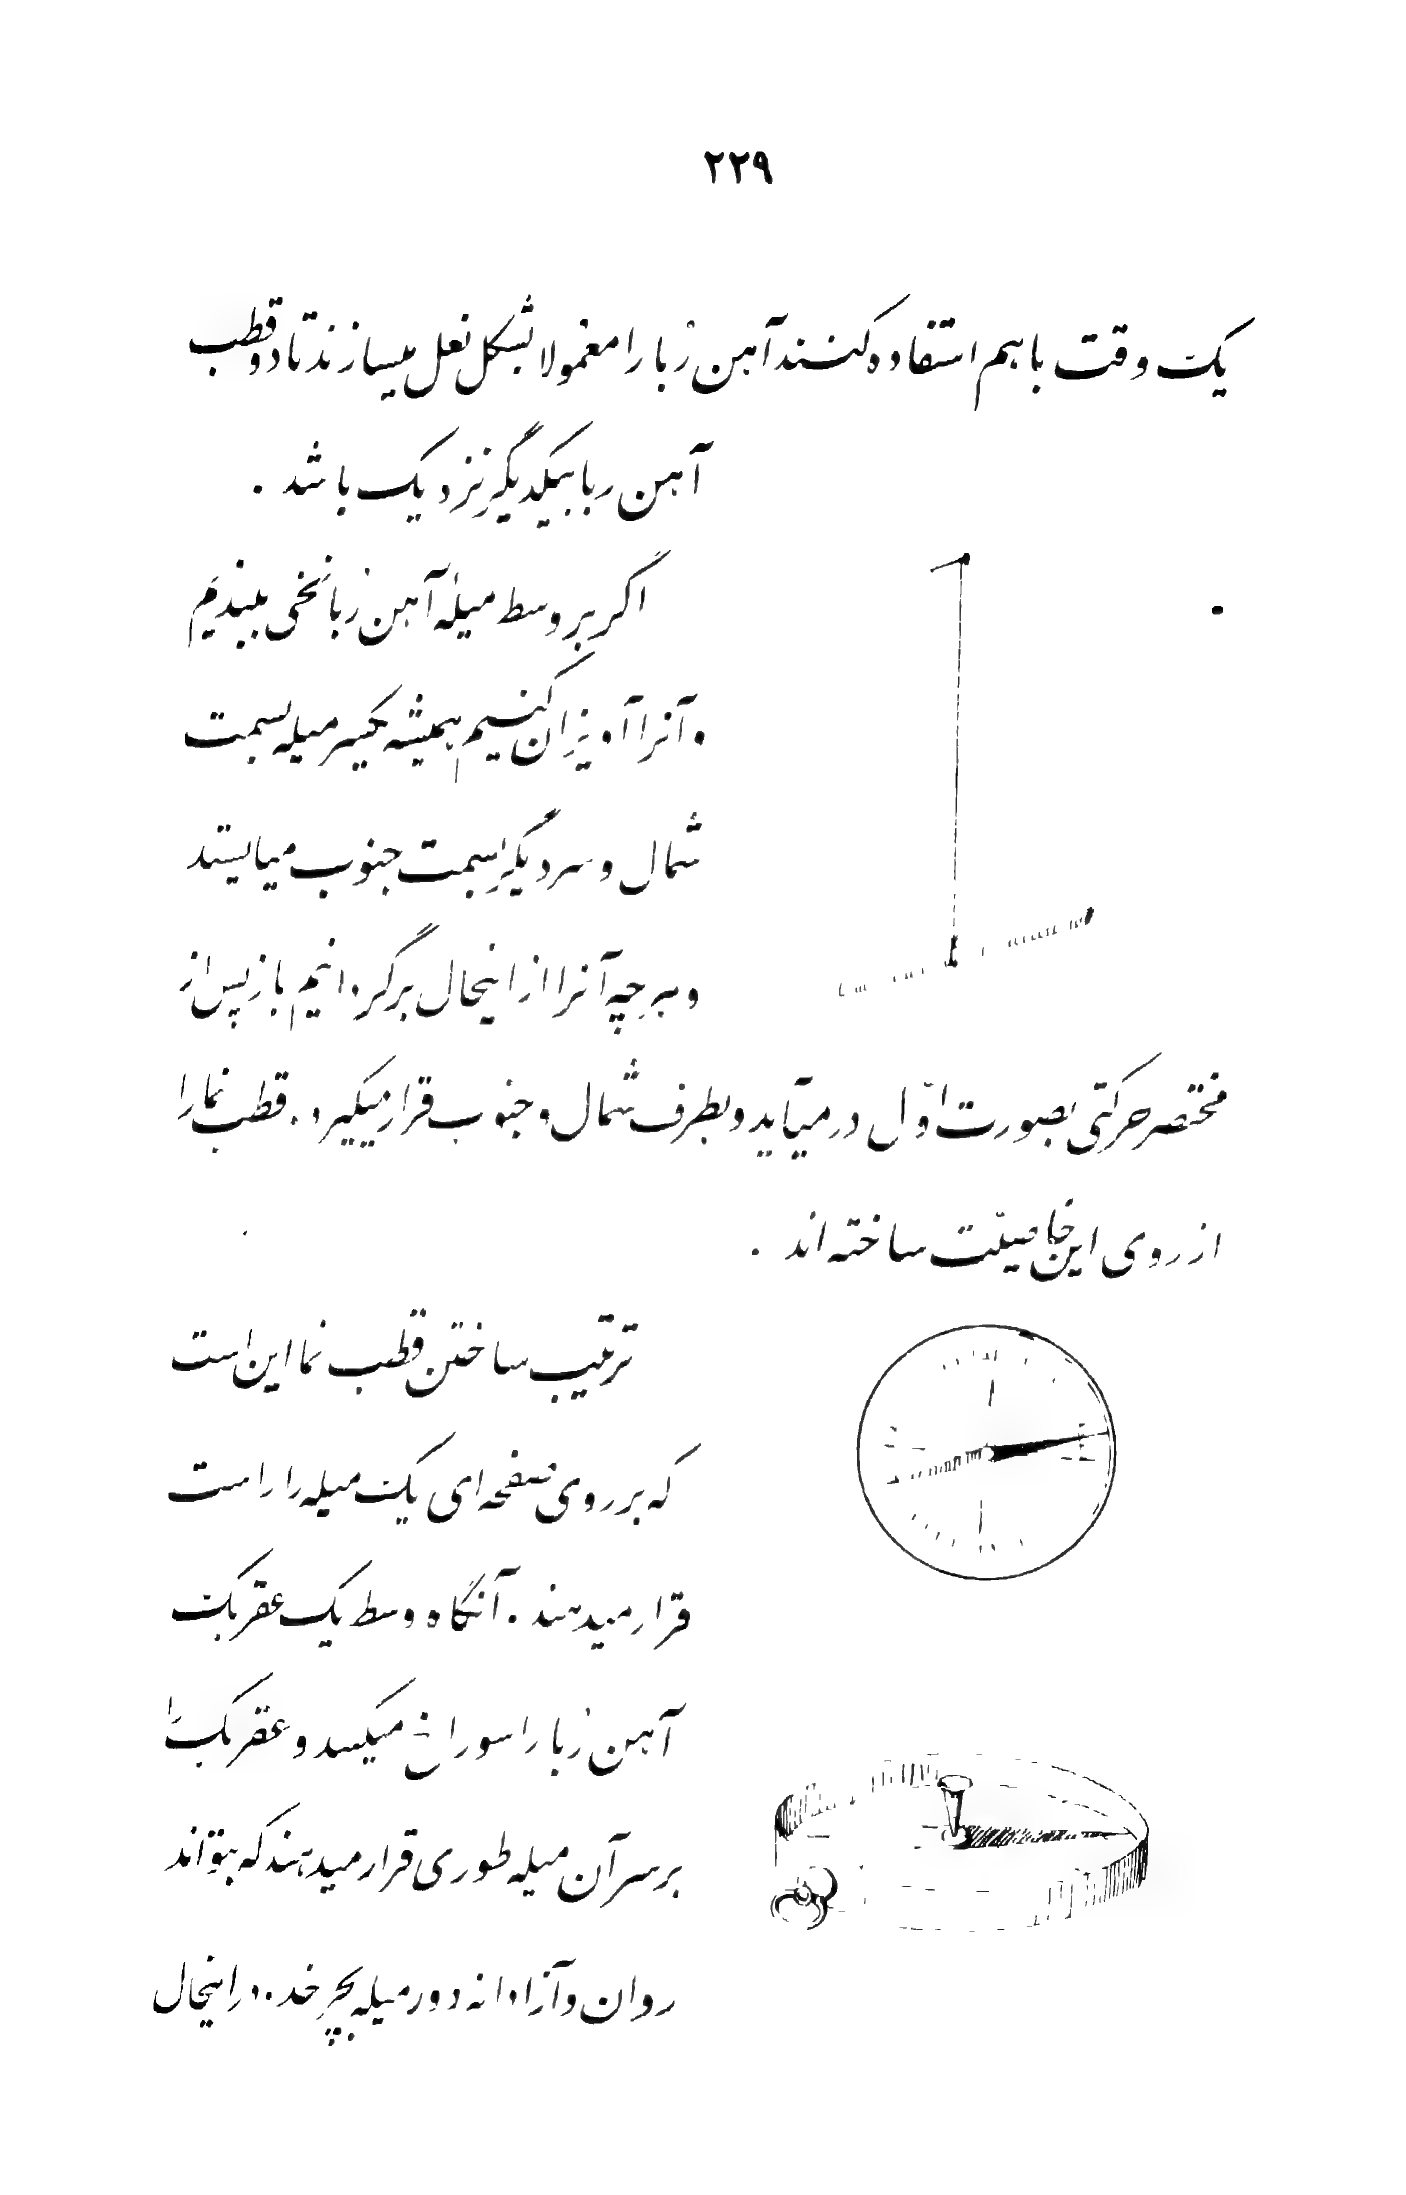 ۲۲۹
یک وقت با هم استفاده کنند آهن ربا را معمولا بشکل نعل میسازند تا دو قطب
آهن ربا بیکدیگر نزدیک باشد .
اگر بر وسط میلهٔ آهن ربا نخی ببندیم
و آنرا آویزان کنیم همیشه یکسر میله بسمت
شمال و سر دیگر بسمت جنوب میایستد
و هرچه آنرا از اینحال برگردانیم باز پس از
مختصر حرکتی بصورت اوّل در میآید و بطرف شمال و جنوب قرار میگیرد . قطب نما را
از روی این خاصیّت ساخته اند .
ترتیب ساختن قطب نما این است
که بر روی صفحه ای یک میله را راست
قرار میدهند . آنگاه وسط یک عقربک
آهن ربا را سوراخ میکنند و عقربک را
بر سر آن میله طوری قرار میدهند که بتواند
روان و آزادانه دور میله بچرخد . در اینحال